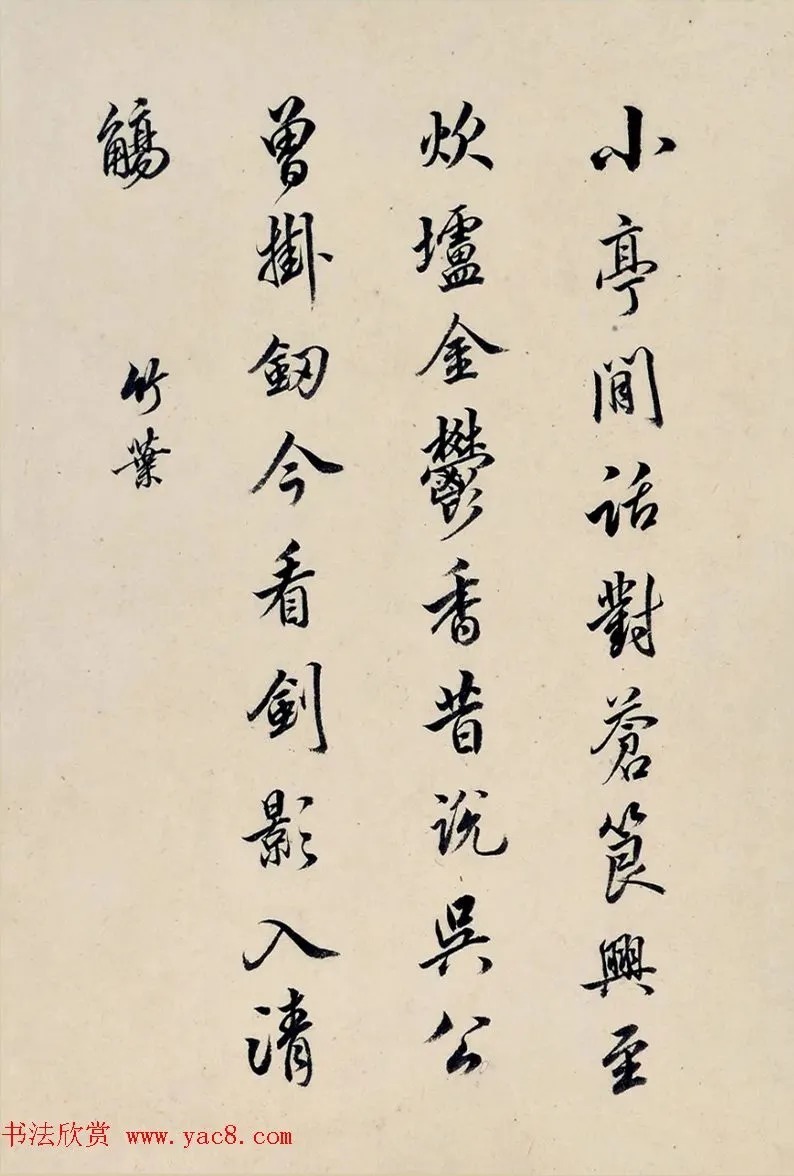 小亭閒話對蒼筤興至
炊壚金鬱香昔說吳公
曾掛釼今看劍影入清
觴
竹葉
书法欣赏 www.yac8.com